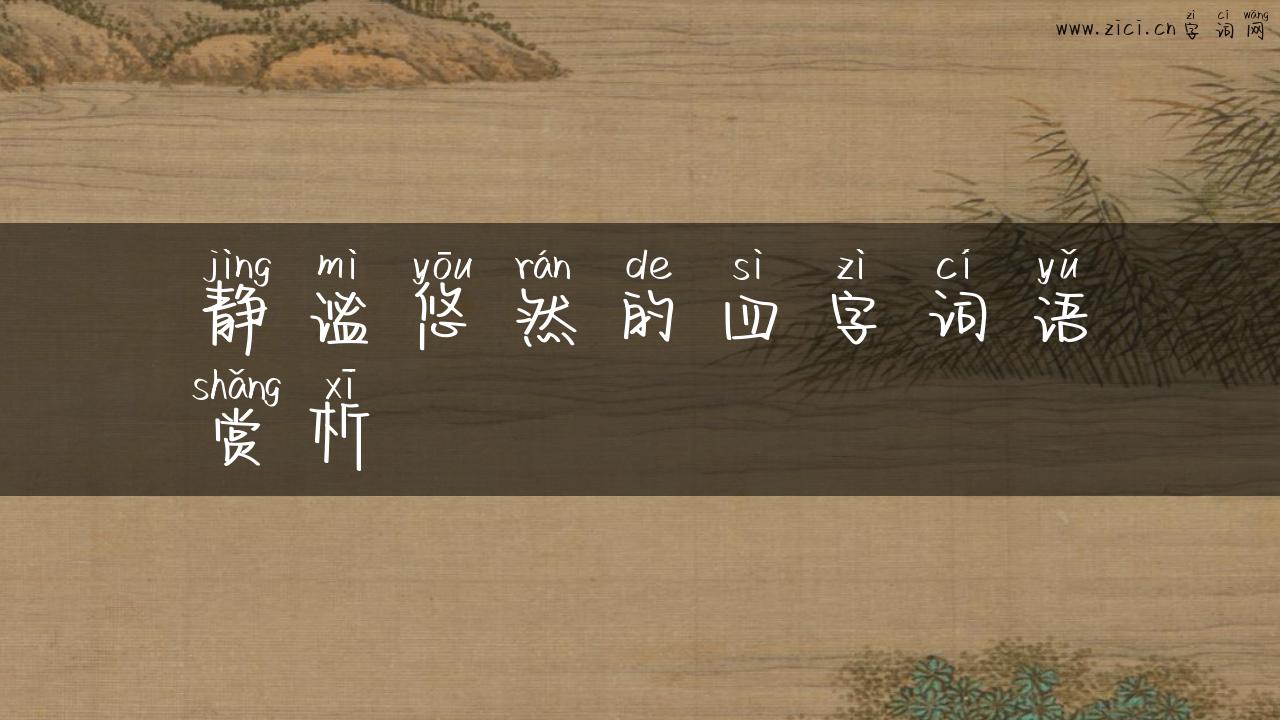 www.zici.cn zì cí wǎng
字词网
jìng mì yōu rán de sì zì cí yǔ
静谧悠然的四字词语
shǎng xī
赏析